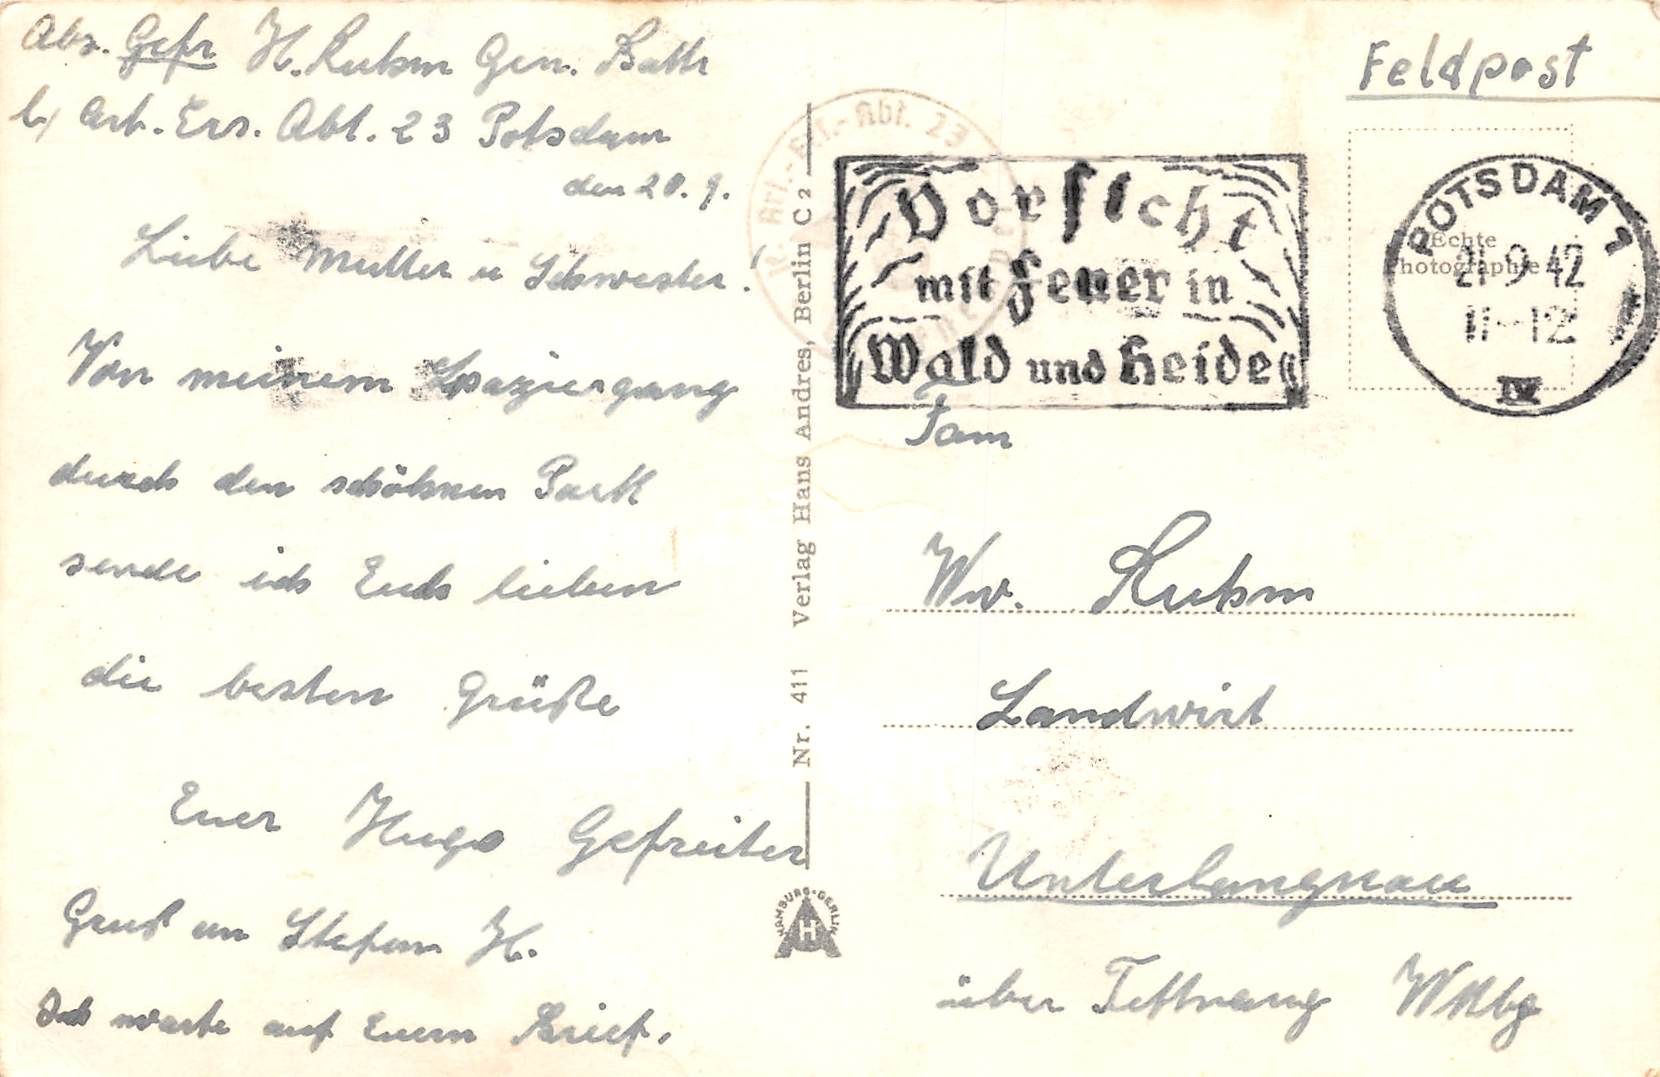 Abs. Gefr H. Kuhm Gen. Battr
b/ Art. Ers. Abt. 23 Potsdam
den 20. 9.
Liebe Mutter u Schwester!
Von meinem Spaziergang
durch den schöhnen Park
sende ich Euch lieben
die besten Grüße
Euer Hugo Gefreiter
Gruß an Stefan H.
Ich warte auf Euern Brief.
Nr. 411 Verlag Hans Andres, Berlin C 2
HAMBURG-BERLIN
H
Art.-Ers.-Abt. 23
Vorsicht
mit Feuer in
Wald und Heide
Feldpost
Echte
Photographie
POTSDAM 1
21-9-42
11-12
IV
Fam
Ww. Kuhm
Landwirt
Unterlangnau
über Tettnang Wttbg